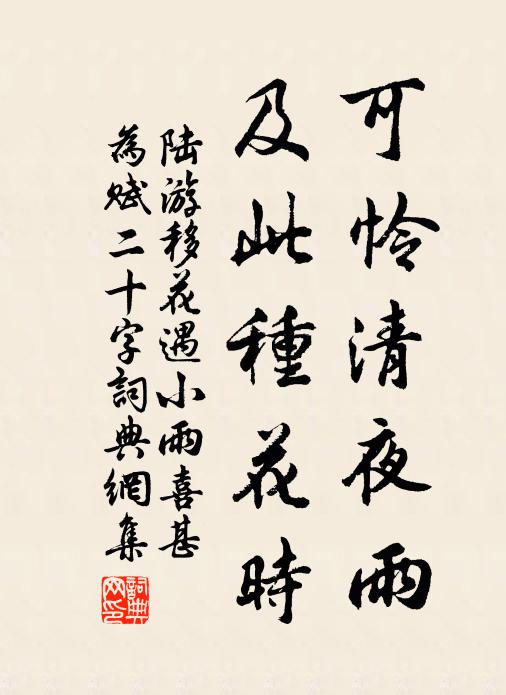 可怜清夜雨
及此種花時
陸游移花遇小雨喜甚
為賦二十字詞典網集
詞典網印